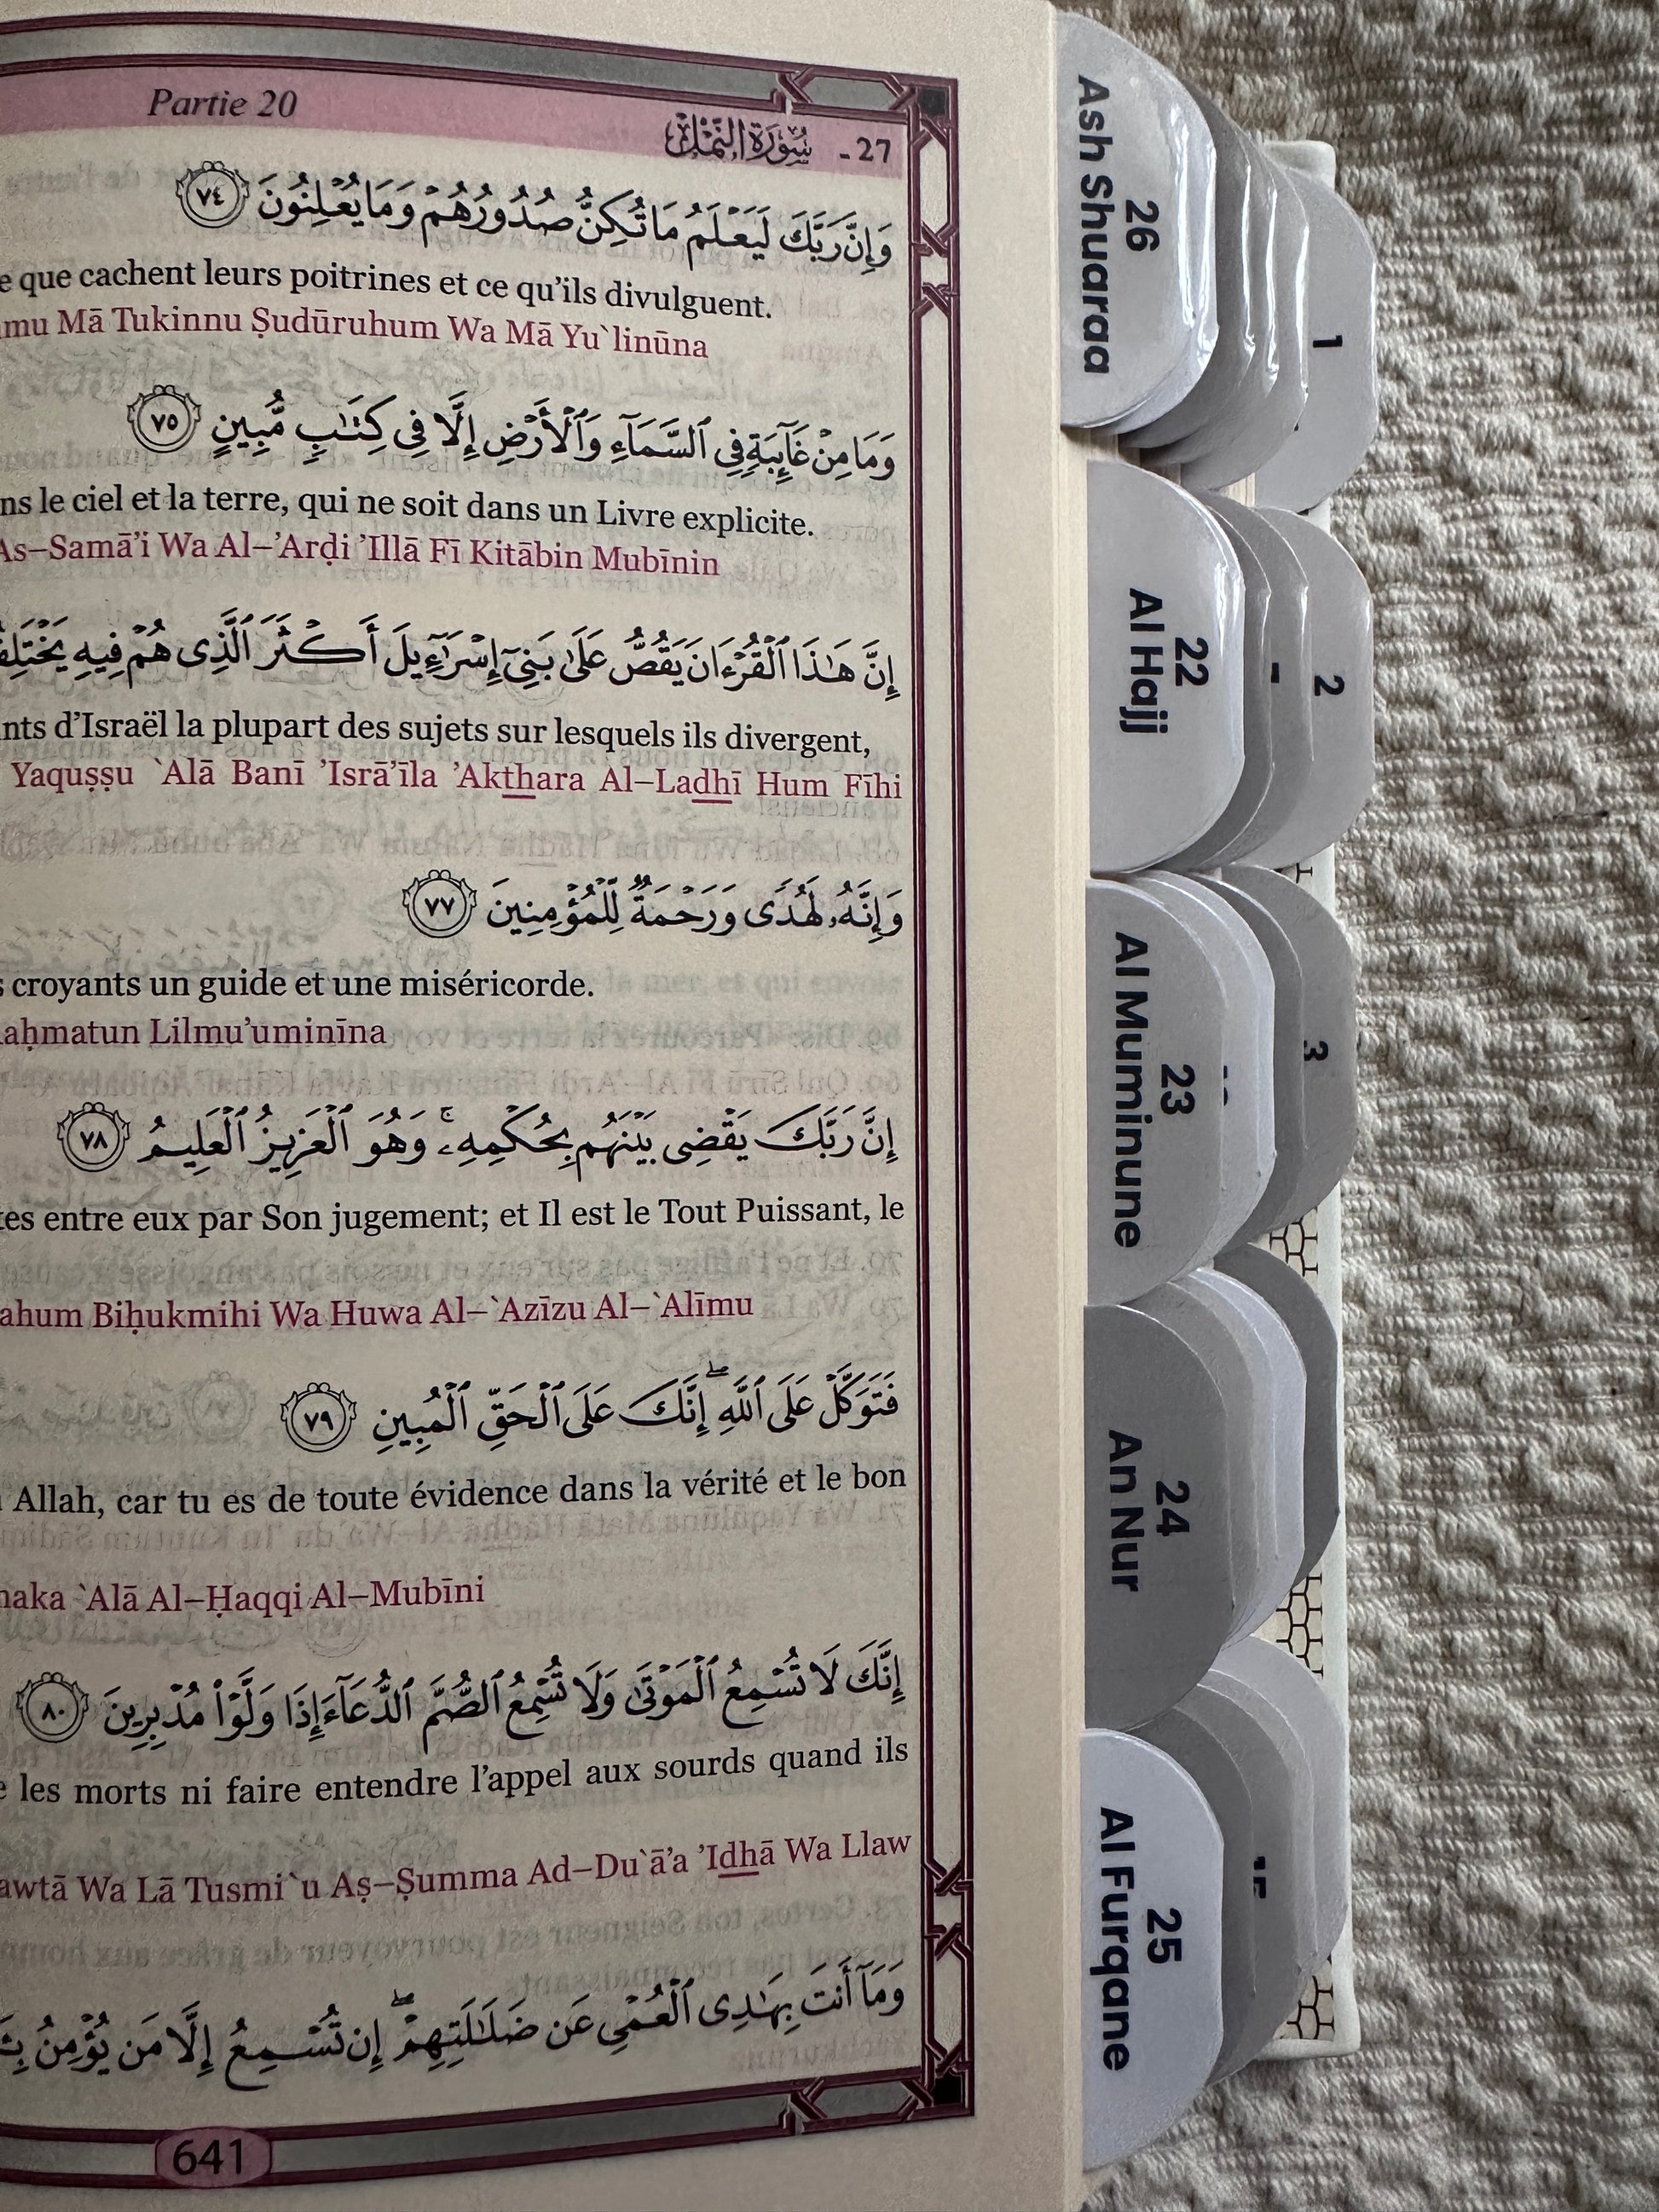 Partie 20
27 - سُورَةُ النَّمْلِ
وَإِنَّ رَبَّكَ لَيَعْلَمُ مَا تُكِنُّ صُدُورُهُمْ وَمَا يُعْلِنُونَ ٧٤
que cachent leurs poitrines et ce qu’ils divulguent.
Mā Tukinnu Ṣudūruhum Wa Mā Yu`linūna
وَمَا مِنْ غَآئِبَةٍ فِى ٱلسَّمَآءِ وَٱلْأَرْضِ إِلَّا فِى كِتَٰبٍ مُّبِينٍ ٧٥
le ciel et la terre, qui ne soit dans un Livre explicite.
As–Samā’i Wa Al–’Arḍi ’Illā Fī Kitābin Mubīnin
إِنَّ هَٰذَا ٱلْقُرْءَانَ يَقُصُّ عَلَىٰ بَنِىٓ إِسْرَٰٓءِيلَ أَكْثَرَ ٱلَّذِى هُمْ فِيهِ
d’Israël la plupart des sujets sur lesquels ils divergent,
Yaquṣṣu `Alā Banī ’Isrā’īla ’Akthara Al–Ladhī Hum Fīhi
وَإِنَّهُۥ لَهُدًى وَرَحْمَةٌ لِّلْمُؤْمِنِينَ ٧٧
croyants un guide et une miséricorde.
Lilmu’uminīna
إِنَّ رَبَّكَ يَقْضِى بَيْنَهُم بِحُكْمِهِۦ ۚ وَهُوَ ٱلْعَزِيزُ ٱلْعَلِيمُ ٧٨
entre eux par Son jugement; et Il est le Tout Puissant, le
Biḥukmihi Wa Huwa Al–`Azīzu Al–`Alīmu
فَتَوَكَّلْ عَلَى ٱللَّهِ ۖ إِنَّكَ عَلَى ٱلْحَقِّ ٱلْمُبِينِ ٧٩
Allah, car tu es de toute évidence dans la vérité et le bon
`Alā Al–Ḥaqqi Al–Mubīni
إِنَّكَ لَا تُسْمِعُ ٱلْمَوْتَىٰ وَلَا تُسْمِعُ ٱلصُّمَّ ٱلدُّعَآءَ إِذَا وَلَّوْا۟ مُدْبِرِينَ ٨٠
les morts ni faire entendre l’appel aux sourds quand ils
Wa Lā Tusmi`u Aṣ–Ṣumma Ad–Du`ā’a ’Idhā Wa Llaw
وَمَآ أَنتَ بِهَٰدِى ٱلْعُمْىِ عَن ضَلَٰلَتِهِمْ ۖ إِن تُسْمِعُ إِلَّا مَن يُؤْمِنُ
641
26
Ash Shuaraa
1
22
Al Hajj
2
23
Al Muminune
3
24
An Nur
25
Al Furqane